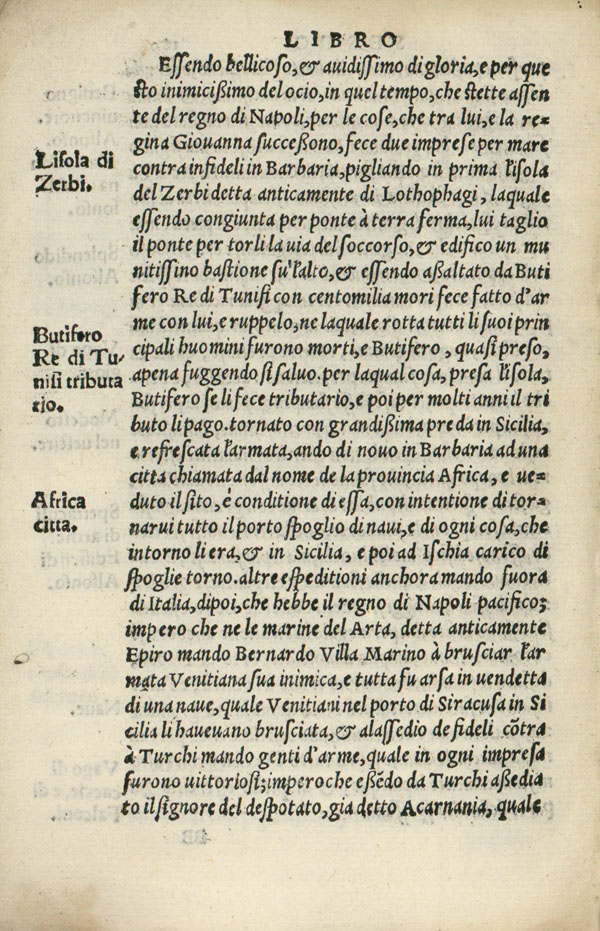 LIBRO
Essendo bellicoso, & auidissimo di gloria, e per que
sto inimicißimo del ocio, in quel tempo, che stette assen
te del regno di Napoli, per le cose, che tra lui, e la re-
gina Giouanna succeßono, fece due imprese per mare
Lisola di
Zerbi.
contra infideli in Barbaria, pigliando in prima l'isola
del Zerbi detta anticamente di Lothophagi, laquale
essendo congiunta per ponte à terra ferma, lui taglio
il ponte per torli la uia del soccorso, & edifico un mu
nitissimo bastione su'l'alto, & essendo aßaltato da Buti
fero Re di Tunisi con centomilia mori fece fatto d'ar
Butifero
Re di Tu-
nisi tributa
rio.
me con lui, e ruppelo, ne laquale rotta tutti li suoi prin
cipali huomini furono morti, e Butifero, quasi preso,
apena fuggendo si saluo. per laqual cosa, presa l'isola,
Butifero se li fece tributario, e poi per molti anni il tri
buto li pago. tornato con grandißima preda in Sicilia,
e refrescata l'armata, ando di nouo in Barbaria ad una
citta chiamata dal nome de la prouincia Africa, e ue-
Africa
citta.
duto il sito, é conditione di essa, con intentione di tor-
narui tutto il porto spoglio di naui, e di ogni cosa, che
intorno li era, & in Sicilia, e poi ad Ischia carico di
spoglie torno. altre espeditioni anchora mando fuora
di Italia, dipoi, che hebbe il regno di Napoli pacifico;
impero che ne le marine del Arta, detta anticamente
Epiro mando Bernardo Villa Marino à brusciar l'ar
mata Venitiana sua inimica, e tutta fu arsa in uendetta
di una naue, quale Venitiani nel porto di Siracusa in Si
cilia li haueuano brusciata, & alassedio de fideli cōtra
à Turchi mando genti d'arme, quale in ogni impresa
furono uittoriosi; imperoche eßēdo da Turchi aßedia
to il signore del despotato, gia detto Acarnania, quale